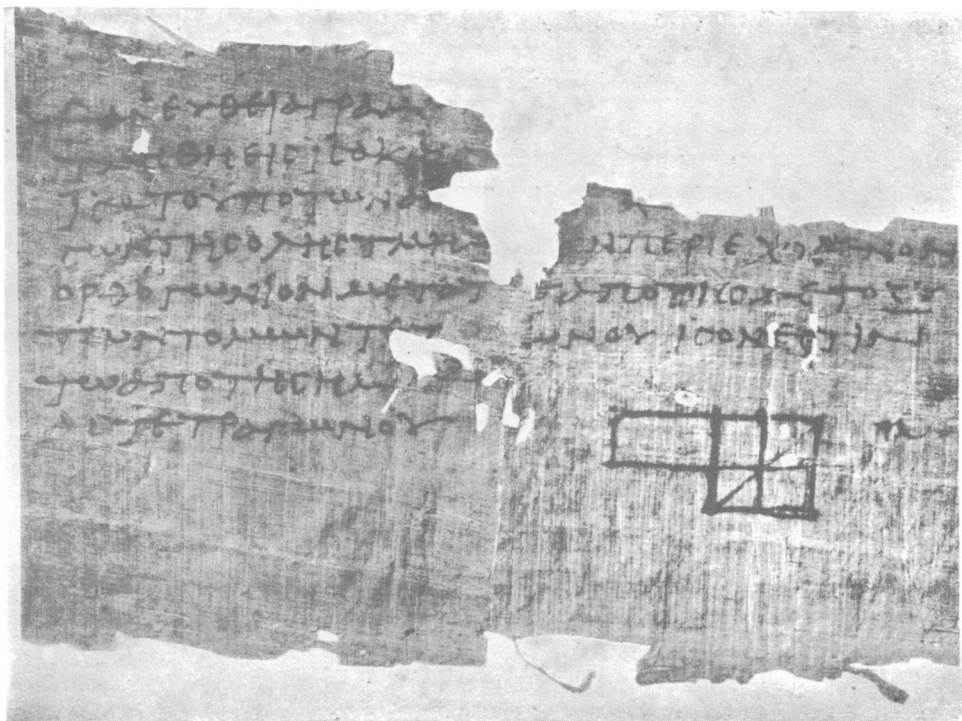 εαν ευθεια γραμμ
τμηθη εις ισα κ
ισα το υπο των
ισων της ολης τμημ ν περιεχομενον
ορθογωνιον μετα του απο της μετοξυ
των τομων τετ ωνου ισον εστιν
τω απο της ημι
ας τετραγωνου